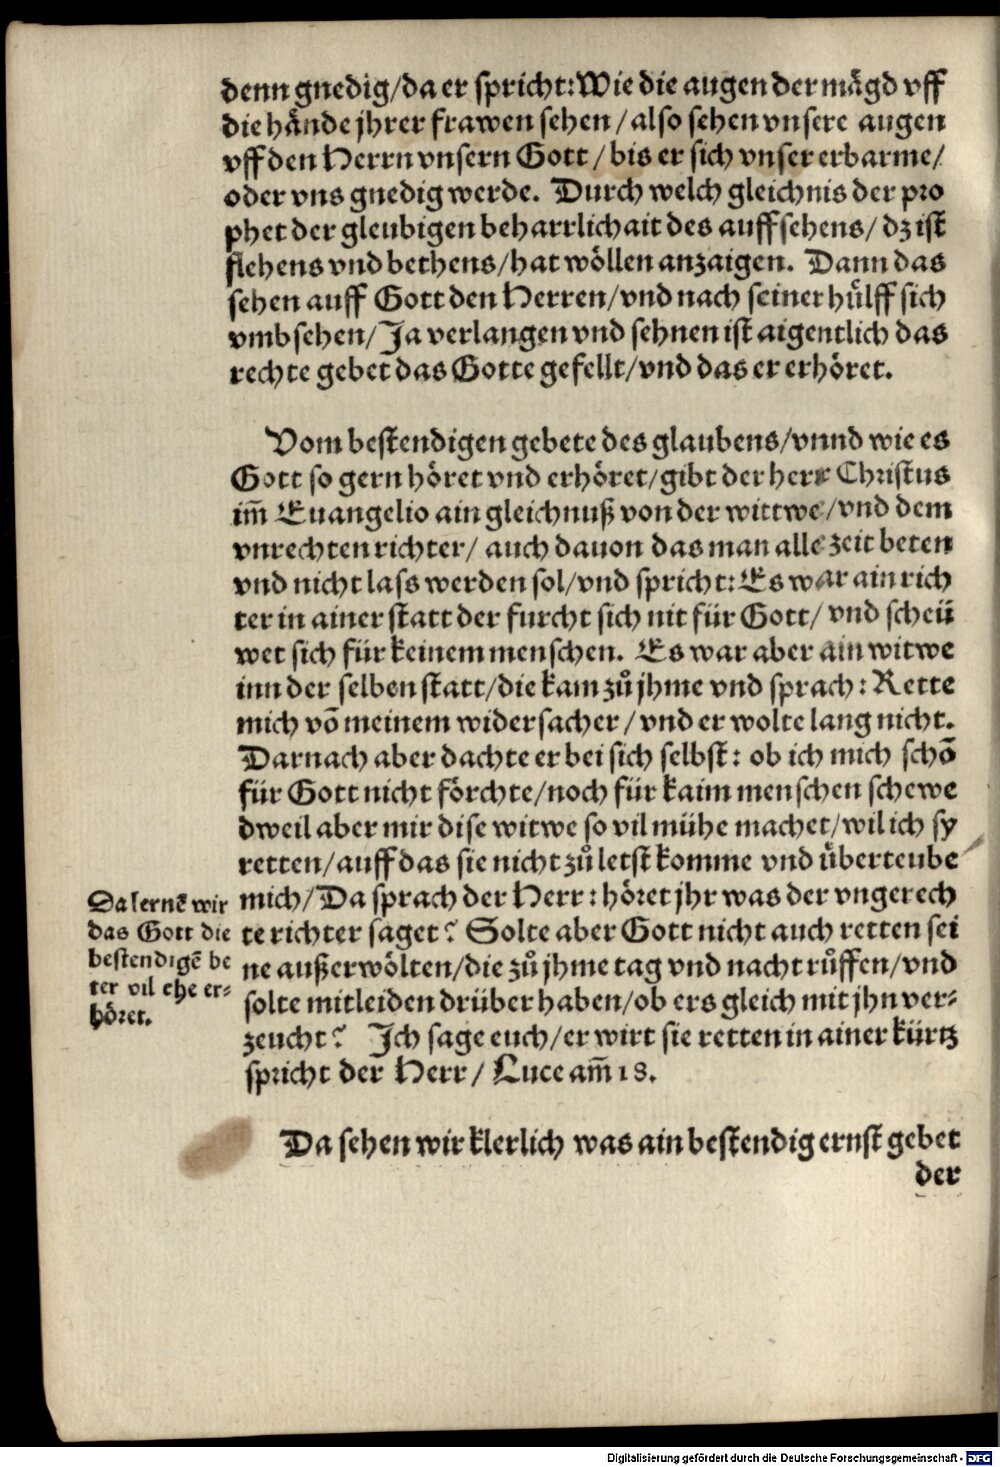 denn gnedig/da er spricht: Wie die augen der mägd vff
die hände jhrer frawen sehen/also sehen vnsere augen
vff den Herrn vnsern Gott/bis er sich vnser erbarme/
oder vns gnedig werde. Durch welch gleichnis der pro
phet der gleubigen beharrlichait des auffsehens/dz ist
flehens vnd bethens/hat wöllen anzaigen. Dann das
sehen auff Gott den Herren/vnd nach seiner hülff sich
vmbsehen/Ja verlangen vnd sehnen ist aigentlich das
rechte gebet das Gotte gefellt/vnd das er erhöret.
Vom bestendigen gebete des glaubens/vnnd wie es
Gott so gern höret vnd erhöret/gibt der herr Christus
im̄ Euangelio ain gleichnuß von der wittwe/vnd dem
vnrechten richter/auch dauon das man alle zeit beten
vnd nicht lass werden sol/vnd spricht: Es war ain rich
ter in ainer statt der furcht sich nit für Gott/vnd scheü
wet sich für keinem menschen. Es war aber ain witwe
inn der selben statt/die kam zů jhme vnd sprach: Rette
mich võ meinem widersacher/vnd er wolte lang nicht.
Darnach aber dachte er bei sich selbst: ob ich mich schõ
für Gott nicht förchte/noch für kaim menschen schewe
dweil aber mir dise witwe so vil mühe machet/wil ich sy
retten/auff das sie nicht zů letst komme vnd überteube
mich/Da sprach der Herr: höret jhr was der vngerech
te richter saget? Solte aber Gott nicht auch retten sei
ne außerwölten/die zů jhme tag vnd nacht růffen/vnd
solte mitleiden drüber haben/ob ers gleich mit jhn ver-
zeucht? Ich sage euch/er wirt sie retten in ainer kürtz
spricht der Herr/Luce am̄ 18.
Da lernẽ wir
das Gott die
bestendigẽ be
ter vil ehe er-
höret.
Da sehen wir klerlich was ain bestendig ernst gebet
der
Digitalisierung gefördert durch die Deutsche Forschungsgemeinschaft - DFG